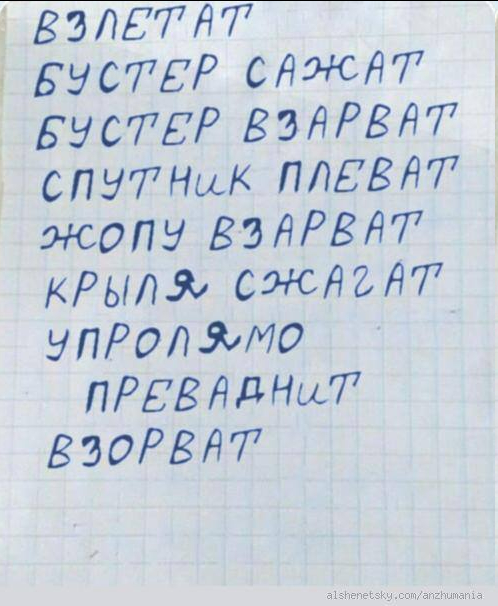 ВЗЛЕТАТ
БУСТЕР САЖАТ
БУСТЕР ВЗАРВАТ
СПУТНИК ПЛЕВАТ
ЖОПУ ВЗАРВАТ
КРЫЛЯ СЖАГАТ
УПРОЛЯМО
ПРЕВАДНИТ
ВЗОРВАТ
alshenetsky.com/anzhumania